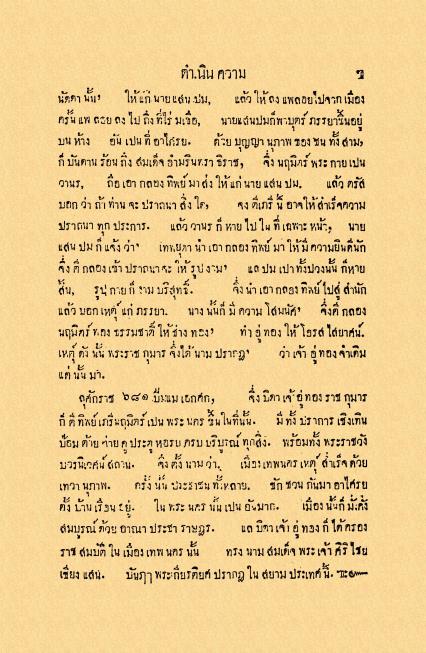 ดำเนิน ความ ๖
นัดดา นั้น' ให้ แก่ นาย แสน ปม, แล้ว ให้ ลง แพลอยไปจาก เมือง
ครั้น แพ ลอย ลง ไป ถึง ที่ไร่ มะเขือ, นายแสนปมก็พาบุตร์ ภรรยาขึ้นอยู่
บน ห้าง อัน เปน ที่ อาไศรย. ด้วย บุญญา นุภาพ ของ ชน ทั้ง สาม,
ก็ บันดาน ร้อน ถึง สมเด็จ อำมรินทรา ธิราช, จึ่ง นฤมิตร์ พระ กาย เปน
วานร, ถือ เอา กลอง ทิพย์ มา ส่ง ให้ แก่ นาย แสน ปม. แล้ว ตรัส
บอก ว่า ถ้า ท่าน จะ ปราถนา สิ่ง ใด, จง ตีเภรี นี้ อาจให้ สำเร็จความ
ปราถนา ทุก ประการ. แล้ว วานร ก็ หาย ไป ใน ที่ เฉพาะ หน้า, นาย
แสน ปม ก็ แจ้ง ว่า' เทพยุดา นำ เอา กลอง ทิพย์ มา ให้ มี ความยินดีนัก
จึ่ง ตี กลอง เข้า ปราถนา จะ ให้ รูป งาม' แล ปม เปา ทั้งปวงนั้น ก็หาย
สิ้น, รูป กาย ก็ งาม บริสุทธิ์. จึ่ง นำ เอา กลอง ทิพย์ไปสู่ สำนัก
แล้ว บอก เหตุ แก่ ภรรยา. นาง นั้นก็ มี ความ โสมนัส' จึ่งตี กลอง
นฤมิตร์ ทอง ธรรมชาติ์ ให้ ช่าง ทอง' ทำ อู่ ทอง ให้ โอรส ไสยาศน์.
เหตุ ดัง นั้น พระราช กุมาร จึ่งได้ นาม ปรากฏ' ว่า เจ้า อู่ ทอง จำเดิม
แต่ นั้น มา.
จุลศักราช ๖๘๑ ปีมแม เอกศก, จึ่ง บิดา เจ้า อู่ ทอง ราช กุมาร
ก็ ตี ทิพย์ เภรีนฤมิตร์ เปน พระ นคร ขึ้น ในที่นั้น. มี ทั้ง ปราการ เชิงเทิน
ป้อม ค่าย คู ประตู หอรบ ครบ บริบูรณ์ ทุกสิ่ง. พร้อมทั้ง พระราชวัง
บวรนิเวศน์ สถาน. จึ่ง ตั้ง นาม ว่า, เมืองเทพนคร เหตุ สำเร็จ ด้วย
เทวา นุภาพ. ครั้ง นั้น ประชาชน ทั้งหลาย. ชัก ชวน กันมา อาไศรย
ตั้ง บ้าน เรือน อยู่. ใน พระ นคร นั้น เปน อันมาก. เมือง นั้นก็ มั่งคั่ง
สมบูรณ์ ด้วย อาณา ประชา ราษฎร. แล บิดา เจ้า อู่ ทอง ก็ ได้ ครอง
ราช สมบัติ ใน เมือง เทพ นคร นั้น ทรง นาม สมเด็จ พระ เจ้า ศิริ ไชย
เชียง แสน. บันฦๅ พระเกียรติยศ ปรากฏ ใน สยาม ประเทศ นี้.